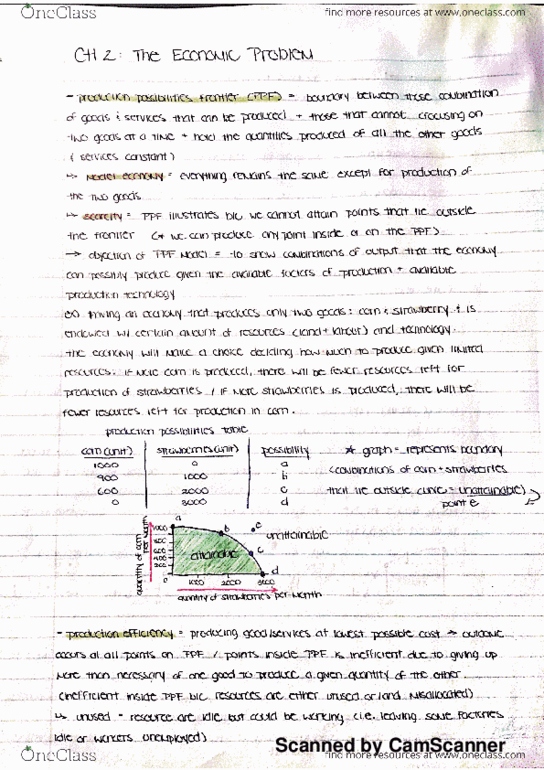 OneClass
find more resources at www.oneclass.com
CH 2: The Economic Problem
- production possibilities frontier (PPF) = boundary between those combination
of goods & services that can be produced + those that cannot (focusing on
two goods at a time + hold the quantities produced of all the other goods
& services constant)
↳ Model economy = everything remains the same except for production of
the two goods
↳ scarcity = PPF illustrates b/c we cannot attain points that lie outside
the frontier (* we can produce any point inside or on the PPF)
→ objection of PPF Model = to show combinations of output that the economy
can possibly produce given the available factors of production + available
production technology
an economy that produces only two goods: corn & strawberry & is
endowed w/ certain amount of resources (land + labour) and technology.
the economy will make a choice deciding how much to produce given limited
resources. if More corn is produced, there will be fewer resources left for
production of strawberries / if More strawberries is produced, there will be
fewer resources left for production in corn.
production possibilities table
corn (unit) strawberries (unit) possibility
1000 0 a
900 1000 b
600 2000 c
0 3000 d
* graph = represents boundary
(combinations of corn + strawberries
that lie outside curve = unattainable)
point e
quantity of corn per month
a
b
c
d
e
unattainable
attainable
0 1000 2000 3000
quantity of strawberries per month
- production efficiency = producing good/services at lowest possible cost → outcome
occurs at all points on PPF / points inside PPF is inefficient due to giving up
More than necessary of one good to produce a given quantity of the other.
(inefficient inside PPF b/c resources are either unused or/and Misallocated)
↳ unused = resource are idle but could be working (i.e. leaving some factories
idle or workers unemployed)
Scanned by CamScanner
OneClass
find more resources at www.oneclass.com